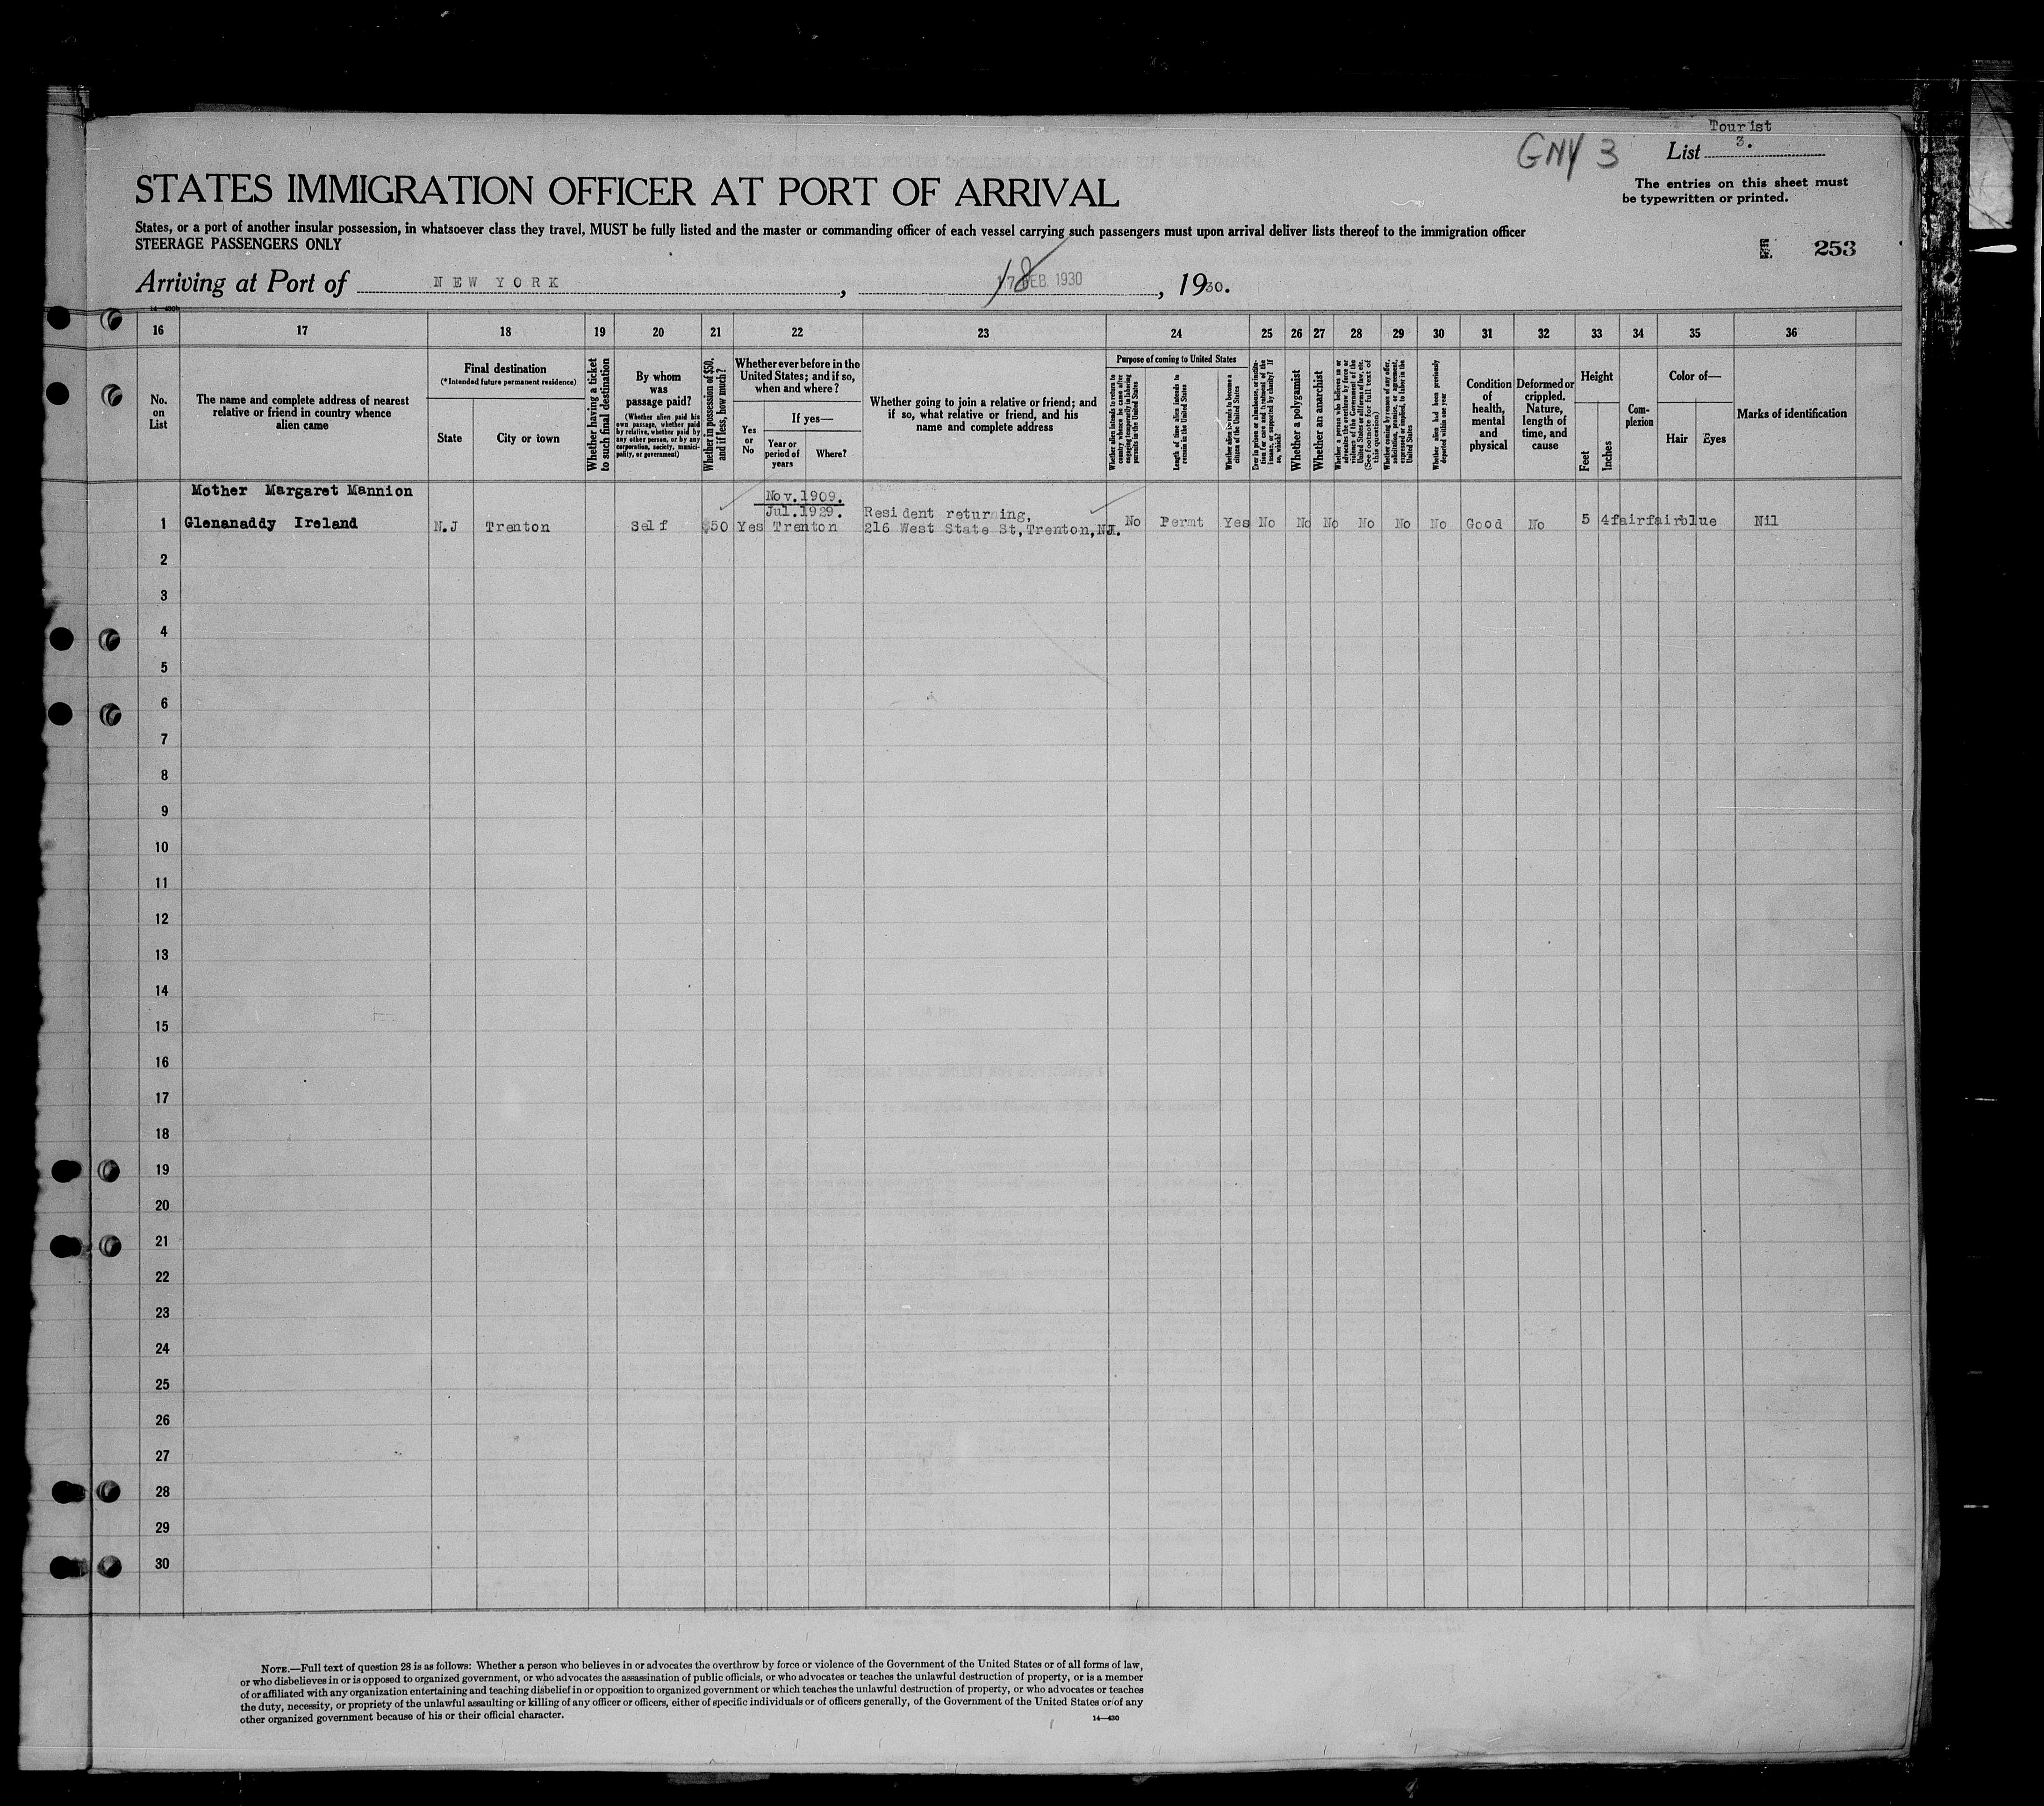 Tourist
GNY 3
List 3.
The entries on this sheet must
be typewritten or printed.
STATES IMMIGRATION OFFICER AT PORT OF ARRIVAL
States, or a port of another insular possession, in whatsoever class they travel, MUST be fully listed and the master or commanding officer of each vessel carrying such passengers must upon arrival deliver lists thereof to the immigration officer
STEERAGE PASSENGERS ONLY
253
Arriving at Port of NEW YORK, 18 17 FEB. 1930, 1930.
16 17 18 19 20 21 22 23 24 25 26 27 28 29 30 31 32 33 34 35 36
No.
on
List
The name and complete address of nearest
relative or friend in country whence
alien came
Final destination
(*Intended future permanent residence)
State
City or town
Whether having a ticket
to such final destination
By whom
was
passage paid?
(Whether alien paid his
own passage, whether paid
by relative, whether paid by
any other person, or by any
corporation, society, munici-
pality, or government)
Whether in possession of $50,
and if less, how much?
Whether ever before in the
United States; and if so,
when and where?
Yes
or
No
If yes—
Year or
period of
years
Where?
Whether going to join a relative or friend; and
if so, what relative or friend, and his
name and complete address
Purpose of coming to United States
Whether alien intends to return to
country whence he came after
engaging temporarily in laboring
pursuits in the United States
Length of time alien intends to
remain in the United States
Whether alien intends to become a
citizen of the United States
Ever in prison or almshouse, or institu-
tion for care and treatment of the
insane, or supported by charity? If
so, which?
Whether a polygamist
Whether an anarchist
Whether a person who believes in or
advocates the overthrow by force or
violence of the Government of the
United States or all forms of law, etc.
(See footnote for full text of
this question)
Whether coming by reason of any offer,
solicitation, promise, or agreement,
expressed or implied, to labor in the
United States
Whether alien had been previously
deported within one year
Condition
of
health,
mental
and
physical
Deformed or
crippled.
Nature,
length of
time, and
cause
Height
Feet
Inches
Com-
plexion
Color of—
Hair
Eyes
Marks of identification
Mother Margaret Mannion Nov.1909.
Jul.1929. Resident returning,
1 Glenanaddy Ireland N.J Trenton Self $50 Yes Trenton 216 West State St, Trenton, NJ. No Permt Yes No No No No No No Good No 5 4 fair fair blue Nil
2
3
4
5
6
7
8
9
10
11
12
13
14
15
16
17
18
19
20
21
22
23
24
25
26
27
28
29
30
NOTE.—Full text of question 28 is as follows: Whether a person who believes in or advocates the overthrow by force or violence of the Government of the United States or of all forms of law,
or who disbelieves in or is opposed to organized government, or who advocates the assassination of public officials, or who advocates or teaches the unlawful destruction of property, or is a member
of or affiliated with any organization entertaining and teaching disbelief in or opposition to organized government or which teaches the unlawful destruction of property, or who advocates or teaches
the duty, necessity, or propriety of the unlawful assaulting or killing of any officer or officers, either of specific individuals or of officers generally, of the Government of the United States or of any
other organized government because of his or their official character.
14—430